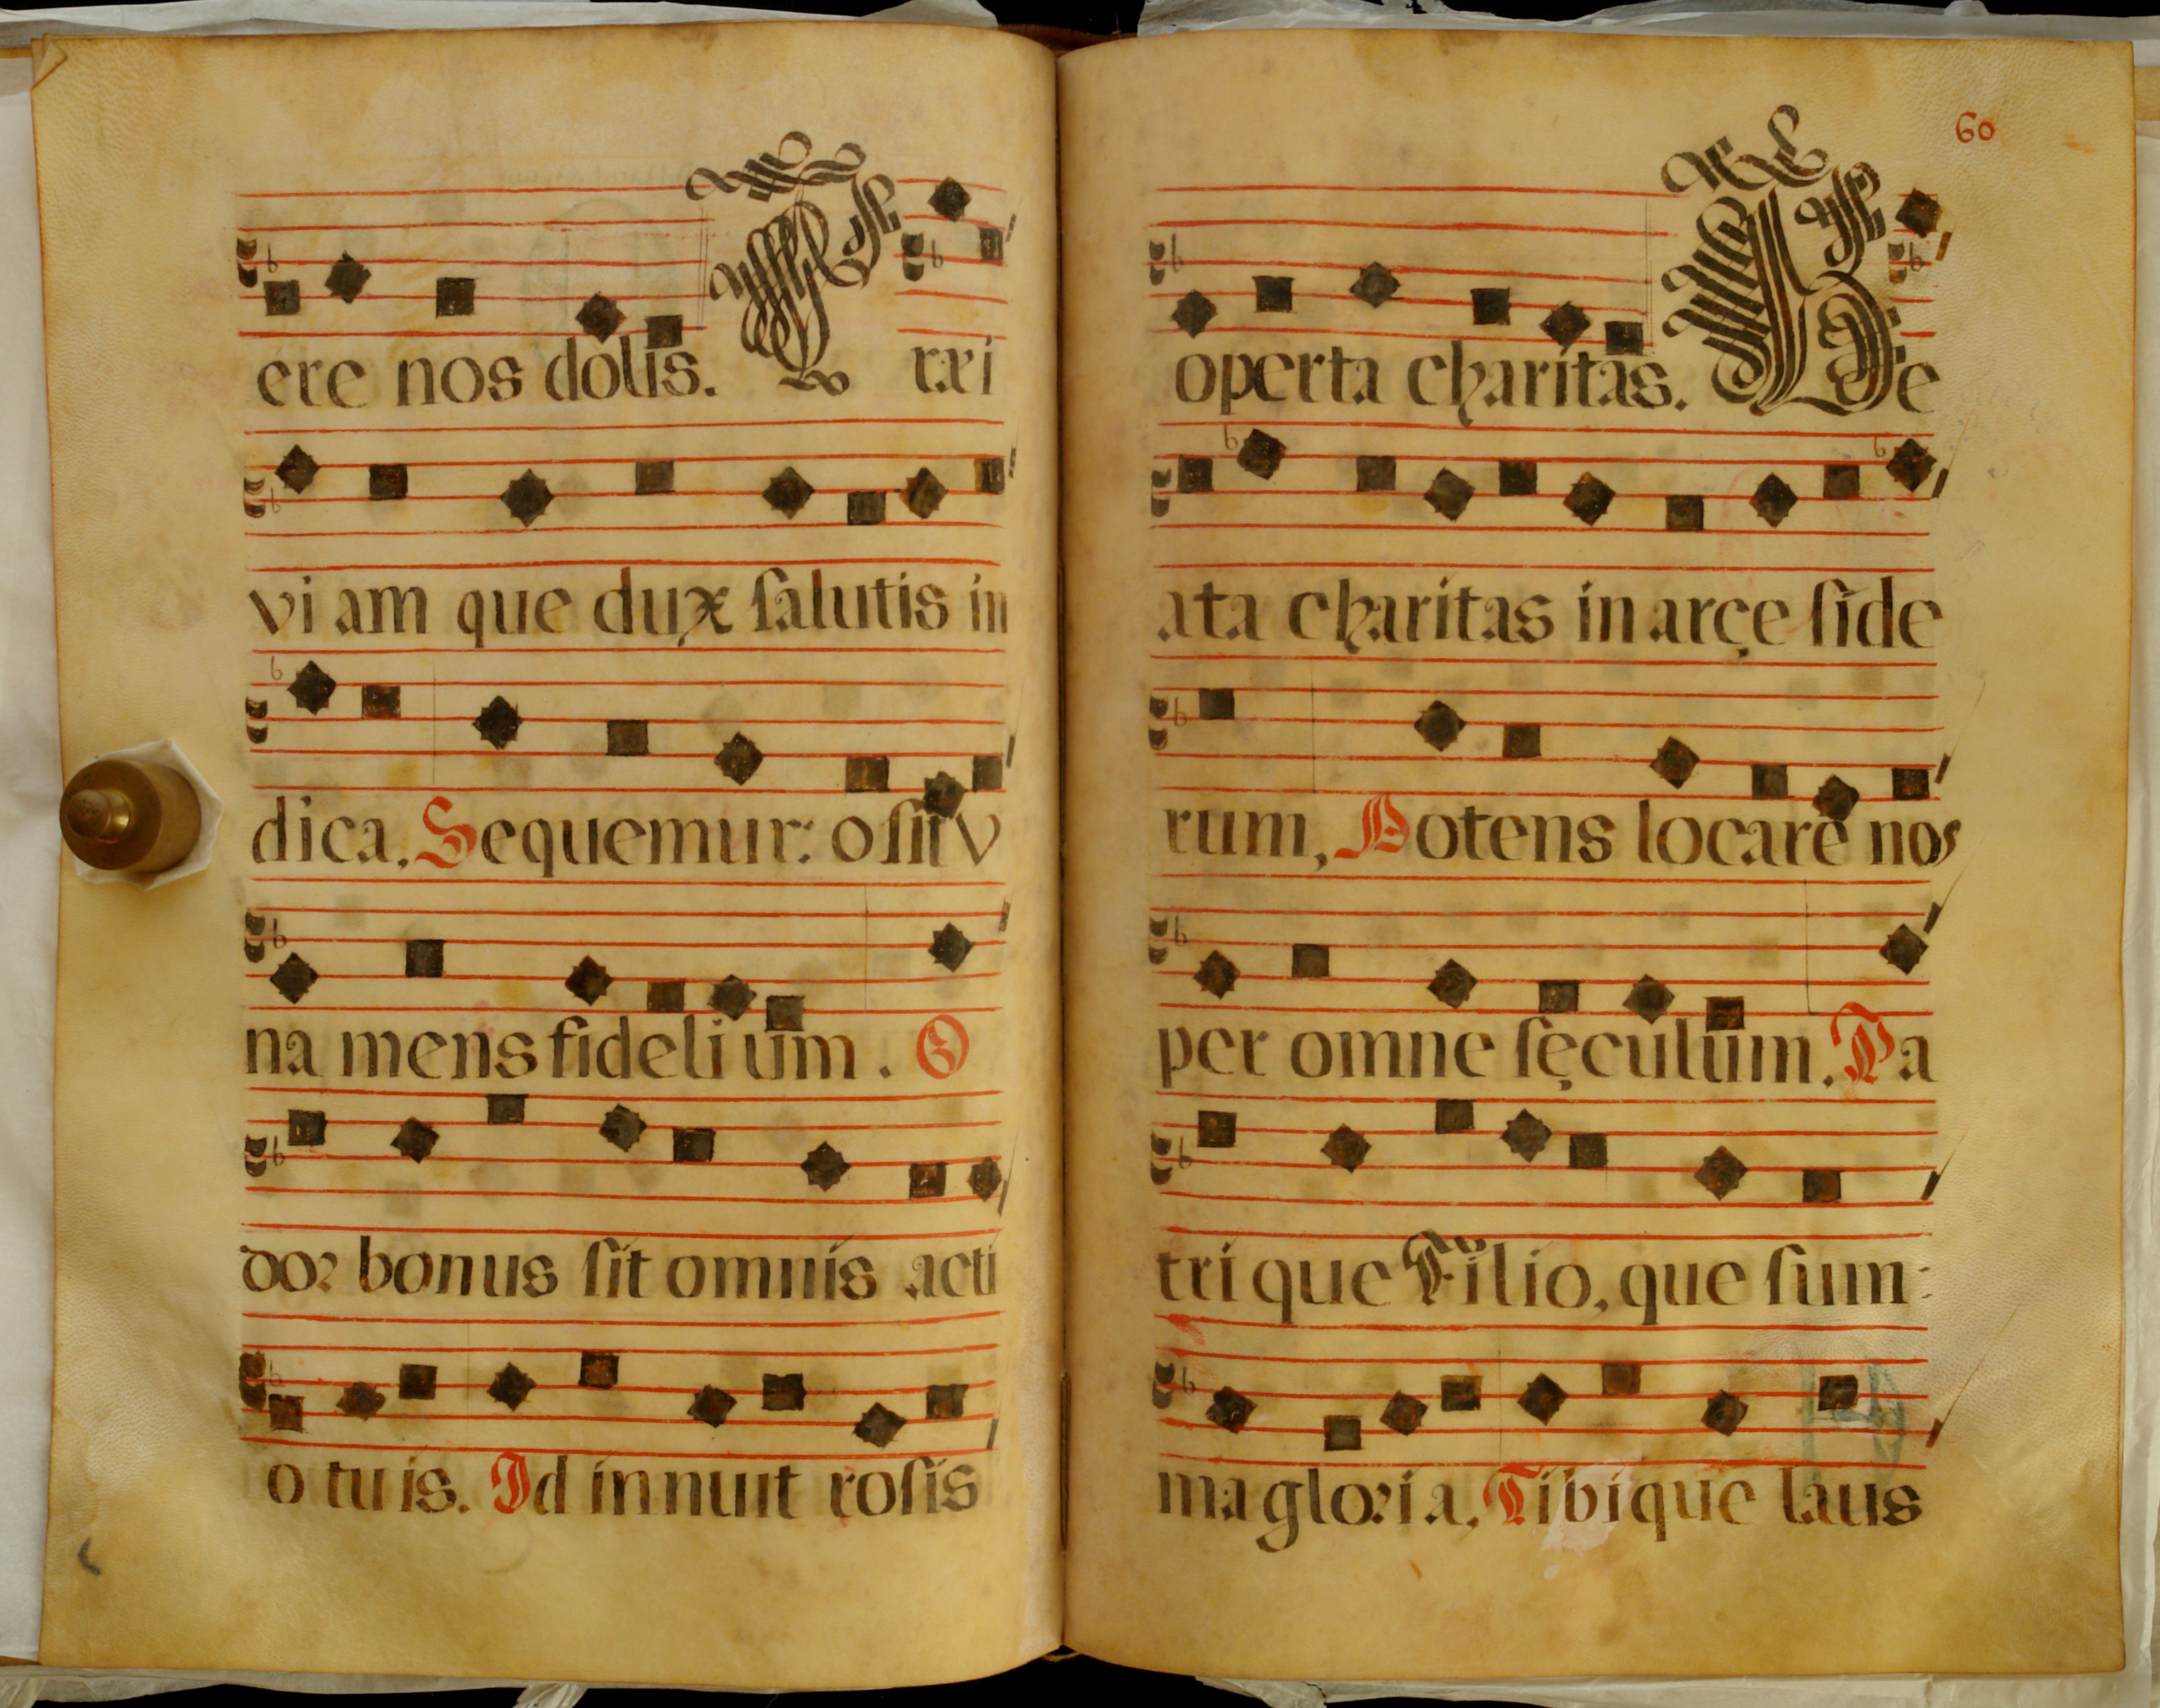 ere nos dolis. rexi
vi am que dux ſalutis in
dica, Sequemur: o ſit v
na mens fideli um. O
dor bonus ſit omnis acti
o tu is. Id innuit roſis
60
operta charitas. Be
ata charitas in arçe ſide
rum, Potens locare nos
per omne ſęculum. Pa
tri que Filio, que ſum:
ma gloria, Tibi que laus